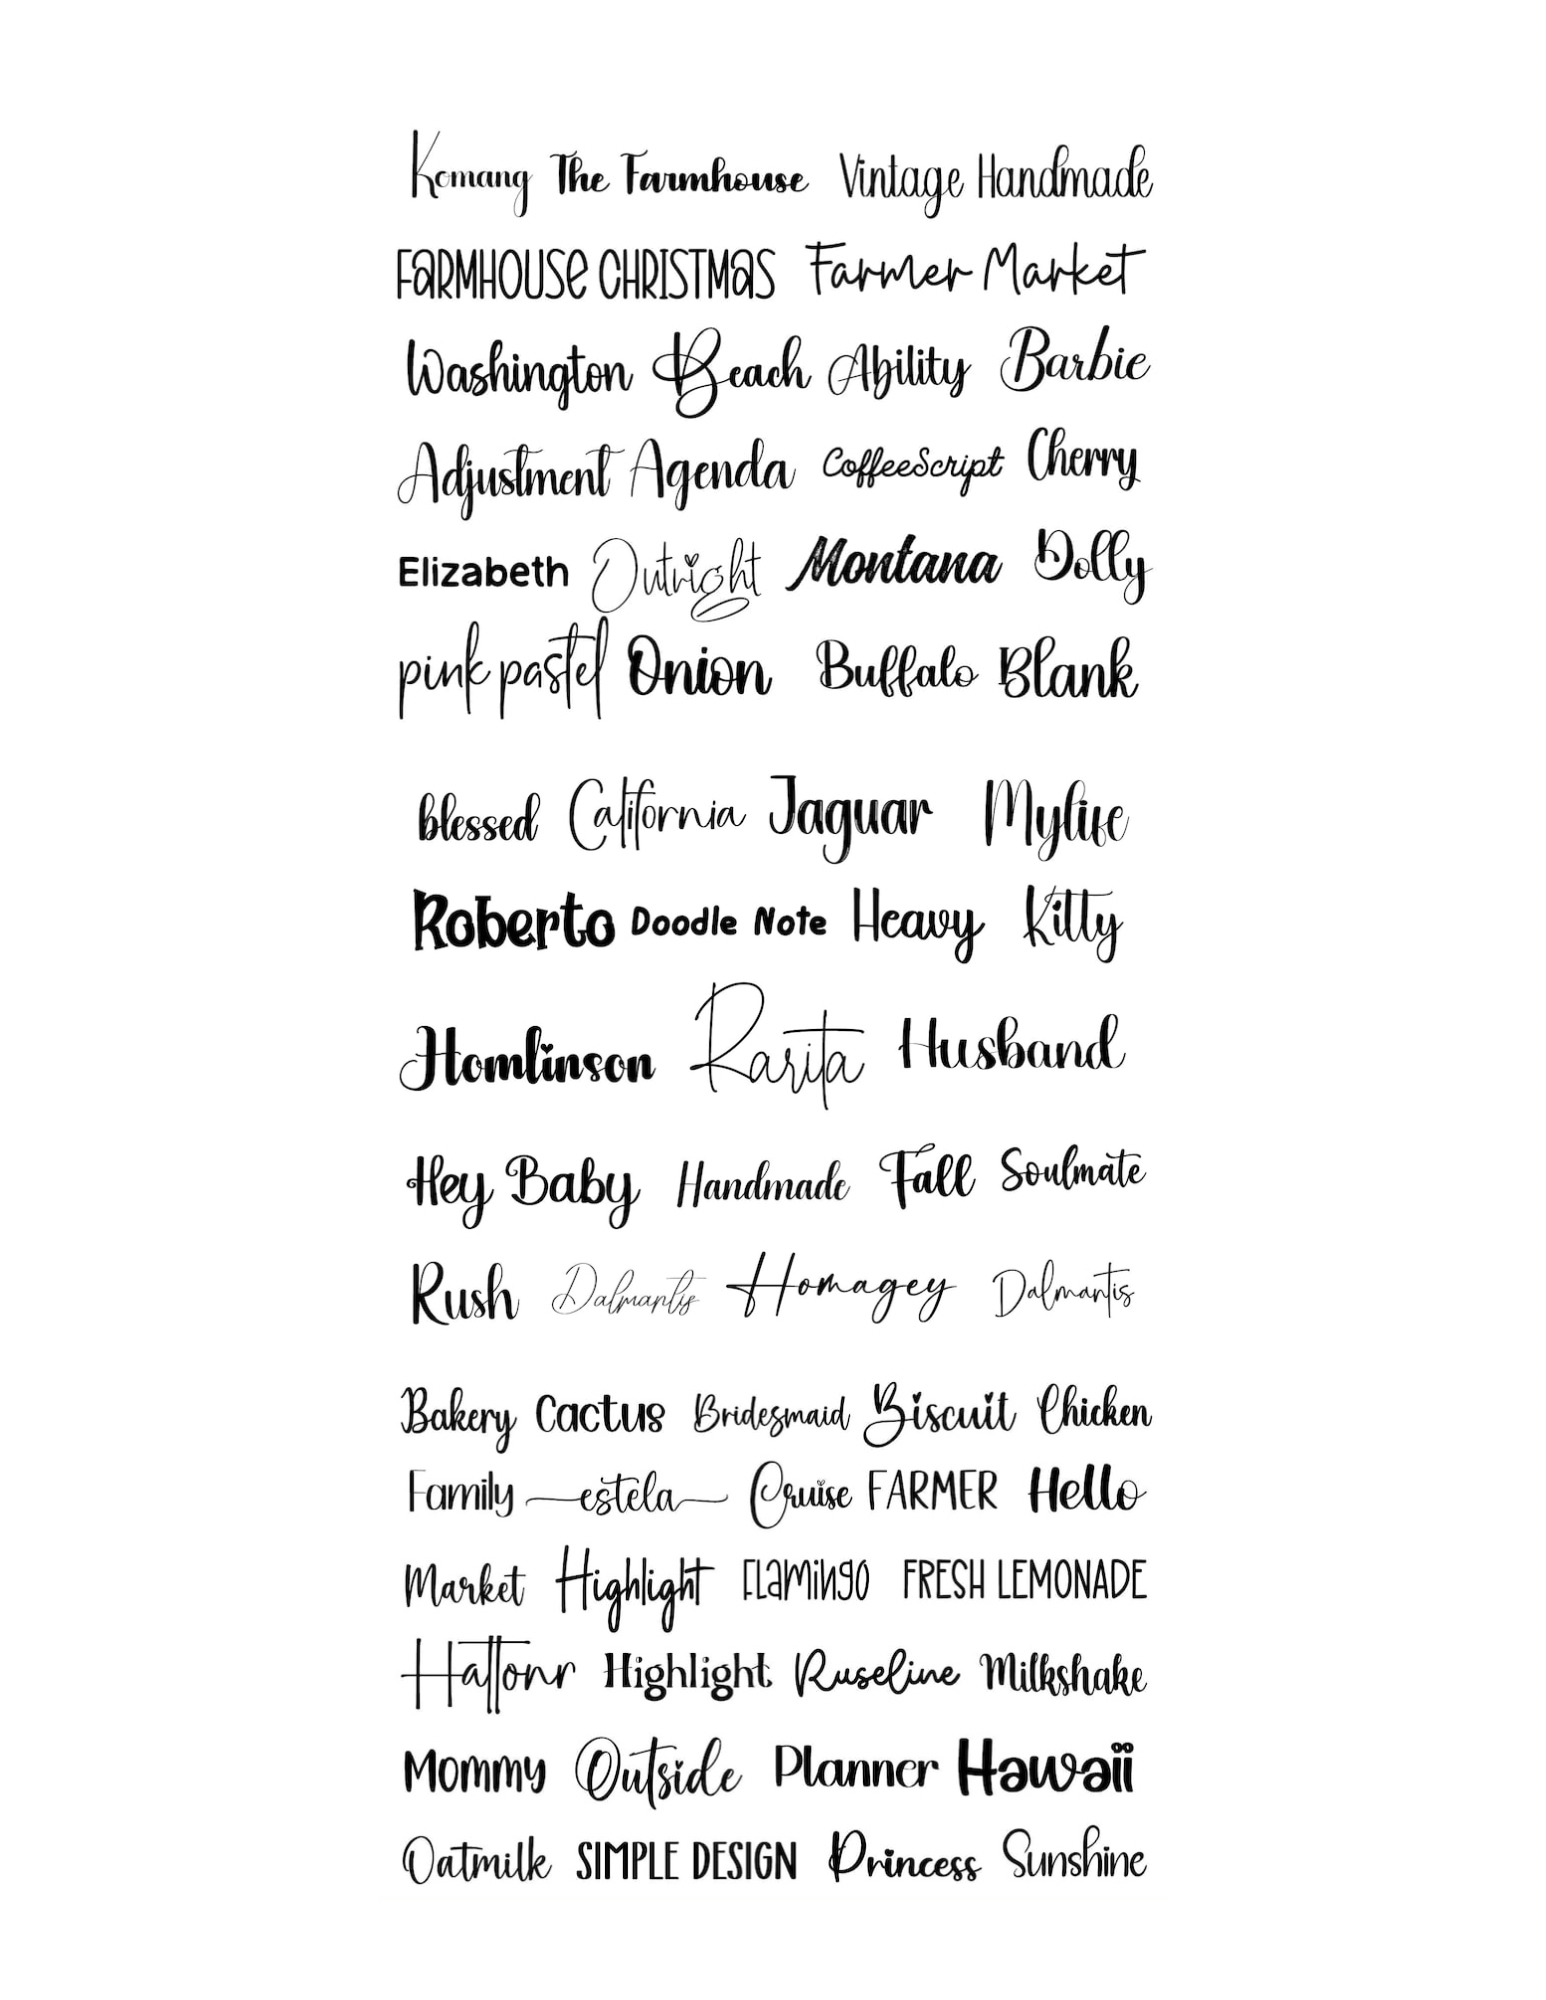 Komang The Farmhouse Vintage Handmade
FaRMHOUSe CHRISTMaS Farmer Market
Washington Beach Ability Barbie
Adjustment Agenda CoffeeScript Cherry
Elizabeth Outright Montana Dolly
pink pastel Onion Buffalo Blank
blessed California Jaguar Mylife
Roberto Doodle Note Heavy Kitty
Homlinson Rarita Husband
Hey Baby Handmade Fall Soulmate
Rush Dalmantis Homagey Dalmantis
Bakery Cactus Bridesmaid Biscuit Chicken
Family estela Cruise FARMER Hello
Market Highlight FLaMiNGO FRESH LEMONADE
Hattonr Highlight Ruseline Milkshake
Mommy Outside Planner Hawaii
Oatmilk SIMPLE DESIGN Princess Sunshine